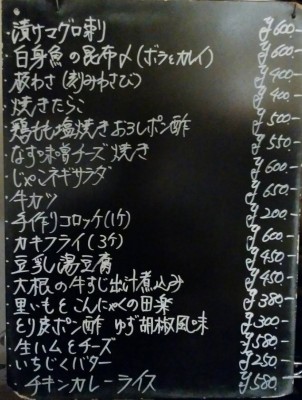 ・漬けマグロ刺 ¥600-
・白身魚の昆布〆(ボラとカレイ) ¥600-
・わさ(刻みわさび) ¥400-
・焼きたらこ ¥400-
・鶏もも塩焼きおろしポン酢 ¥500-
・なす味噌チーズ焼き ¥550-
・じゃこネギサラダ ¥600-
・牛カツ ¥650-
・手作りコロッケ(1ケ) ¥200-
・カキフライ(3ケ) ¥600-
・豆乳湯豆腐 ¥450-
・大根の牛すじ出汁煮込み ¥450-
・里いもとこんにゃくの田楽 ¥380-
・とり皮ポン酢 ゆず胡椒風味 ¥300-
・生ハムとチーズ ¥580-
・いちじくバター ¥250-
・チキンカレーライス ¥580-